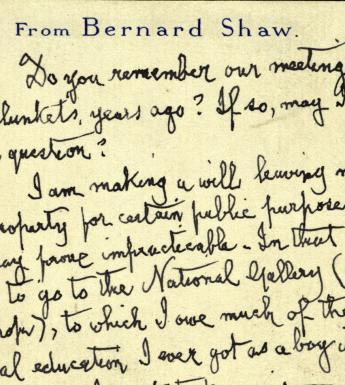 From Bernard Shaw.
Do you remember our meeting
lunkets, years ago? If so, may I
question?
I am making a will leaving m
roperty for certain public purpose
ay prove impracticable. In that
to go to the National Gallery (
), to which I owe much of the
al education I ever got as a boy i